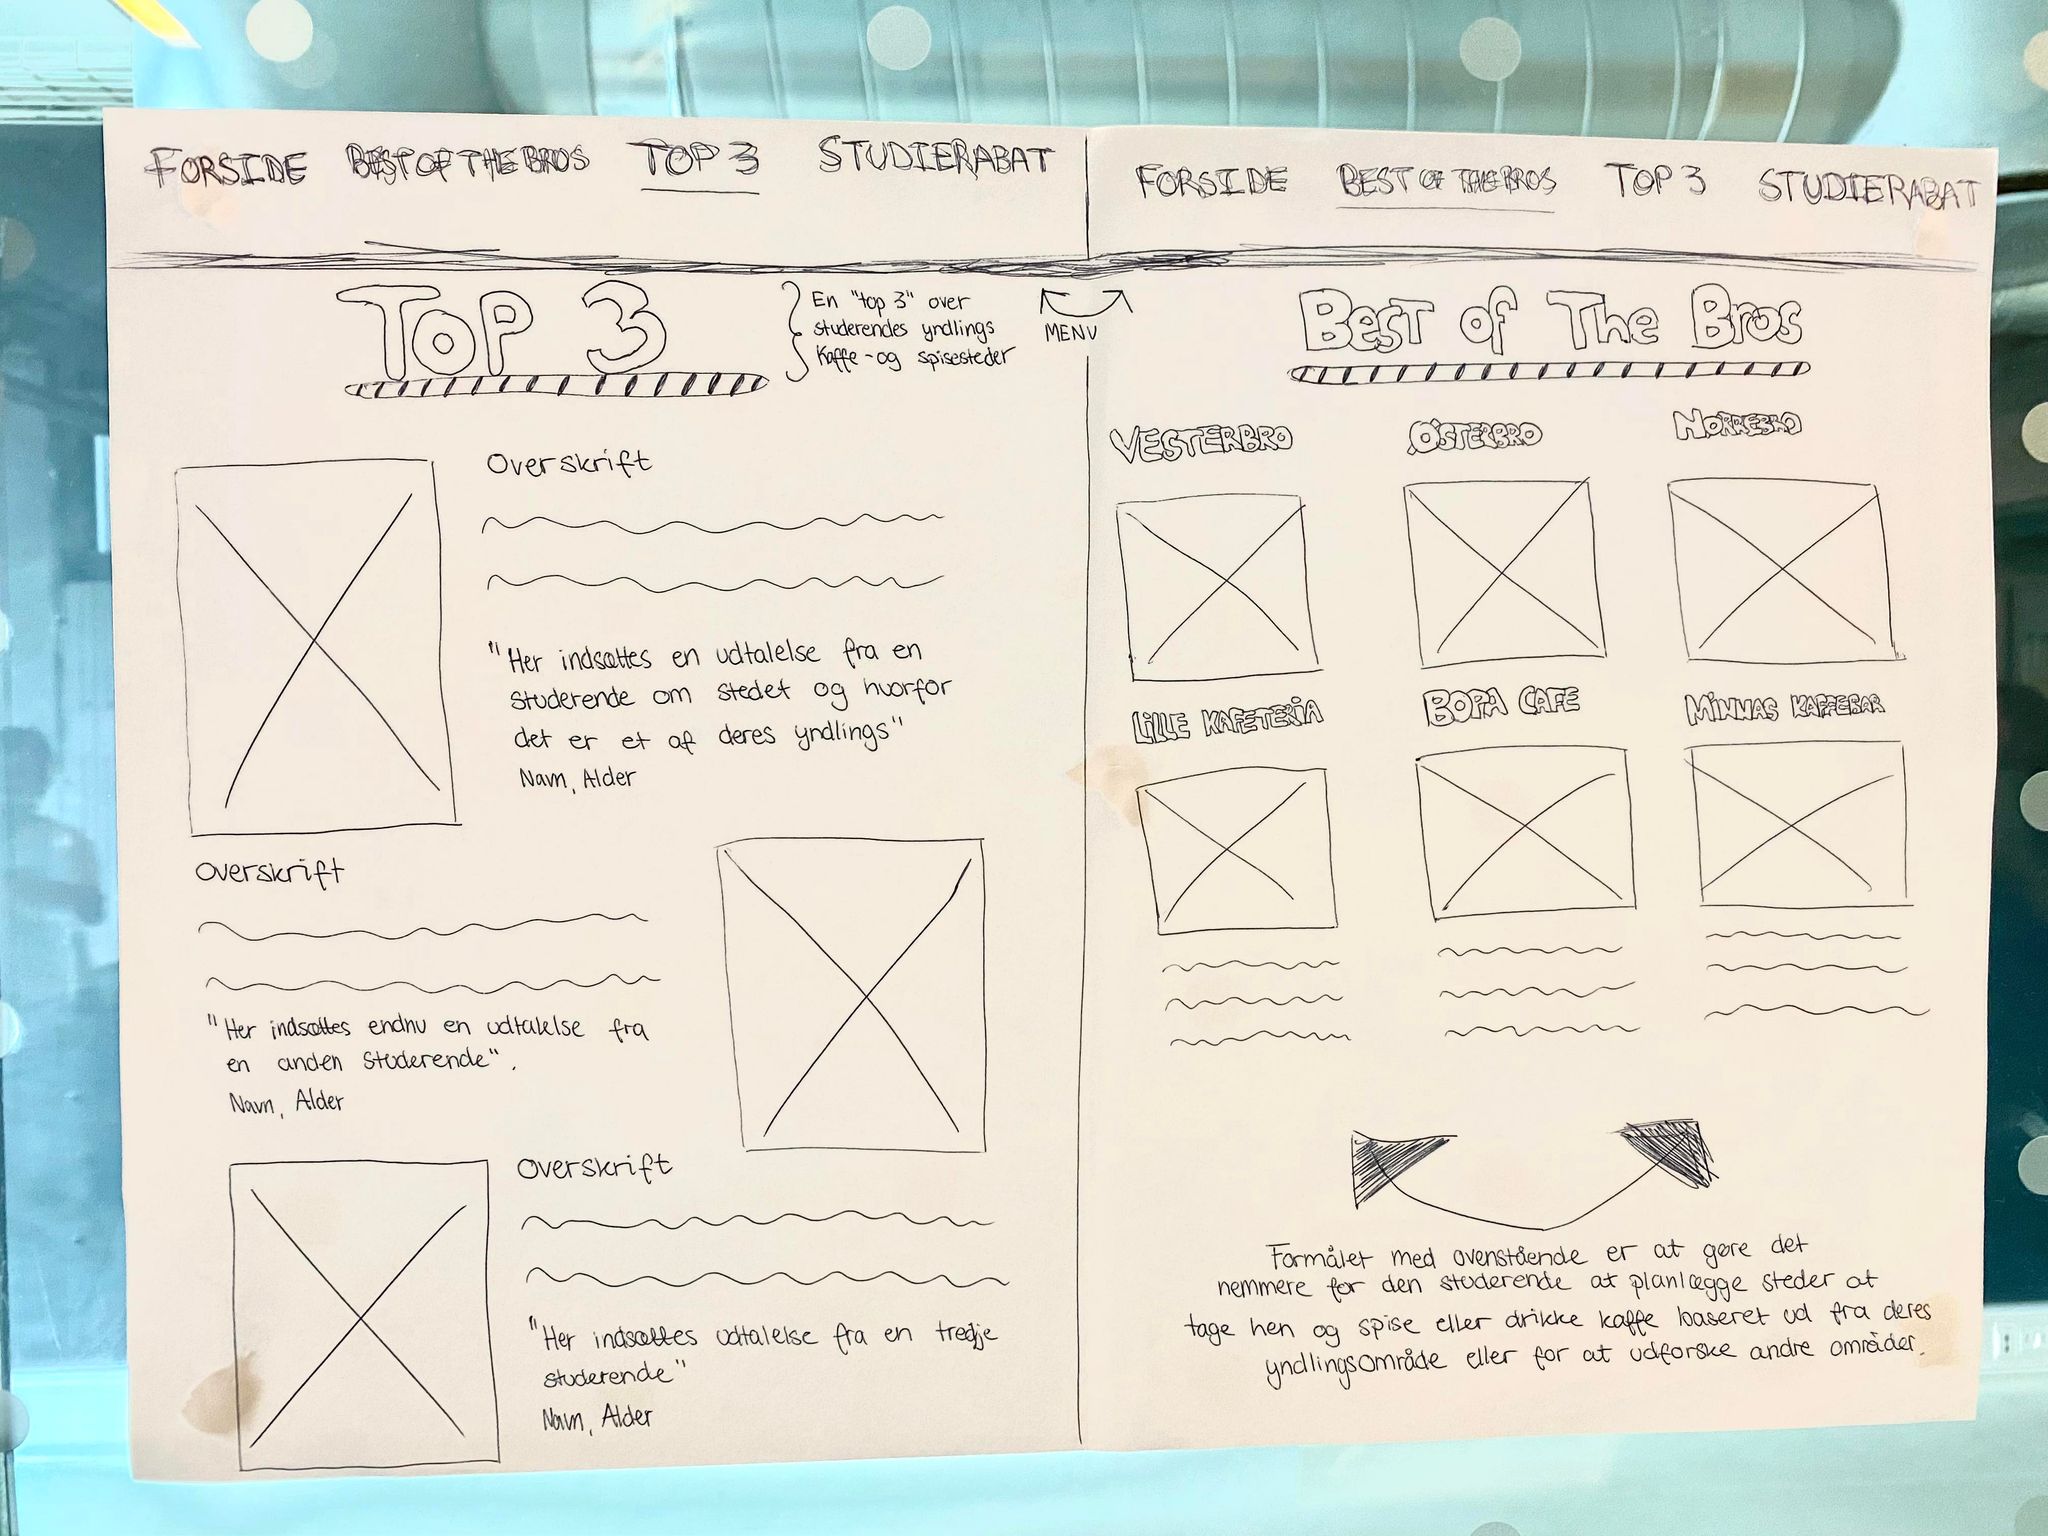 FORSIDE BEST OF THE BROS TOP 3 STUDIERABAT
TOP 3
En "top 3" over
studerendes yndlings
Kaffe-og spisesteder
MENU
Overskrift
"Her indsættes en udtalelse fra en
studerende om stedet og hvorfor
det er et af deres yndlings"
Navn, Alder
Overskrift
"Her indsættes endnu en udtalelse fra
en anden studerende".
Navn, Alder
Overskrift
"Her indsættes udtalelse fra en tredje
studerende"
Navn, Alder
FORSIDE BEST OF THE BROS TOP 3 STUDIERABAT
Best of The Bros
VESTERBRO ØSTERBRO NØRREBRO
LILLE KAFETERIA BOPA CAFE MINNAS KAFFEBAR
Formålet med ovenstående er at gøre det
nemmere for den studerende at planlægge steder at
tage hen og spise eller drikke kaffe baseret ud fra deres
yndlingsområde eller for at udforske andre områder.